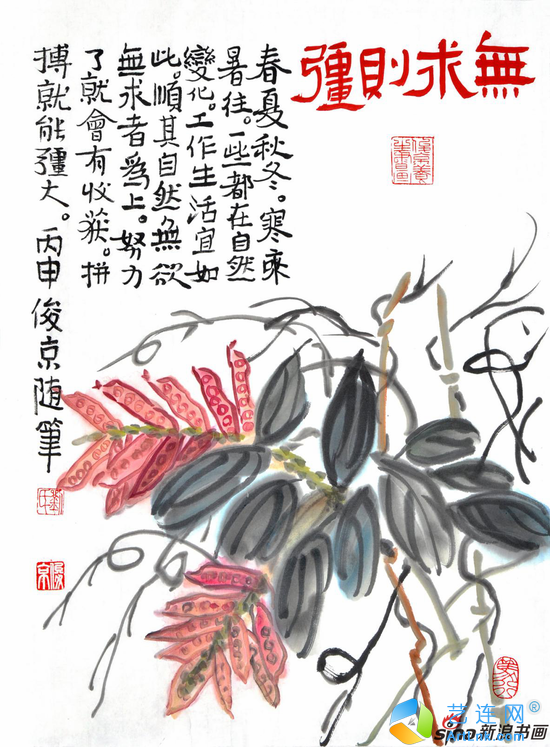 無求則彊
春夏秋冬。寒來
暑往。一些都在自然
變化。工作生活宜如
此。順其自然無欲
無求者爲上。努力
了就會有收获。拼
搏就能彊大。丙申俊京随筆
艺连网®
sina新浪书画